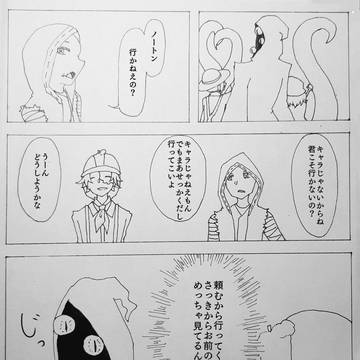 ノートン
行かねえの?
キャラじゃないからね
君こそ行かないの?
キャラじゃねえもん
でもまあせっかくだし
行ってこいよ
うーん
どうしようかな
頼むから行ってく
さっきからお前の
めっちゃ見てるん
じっ